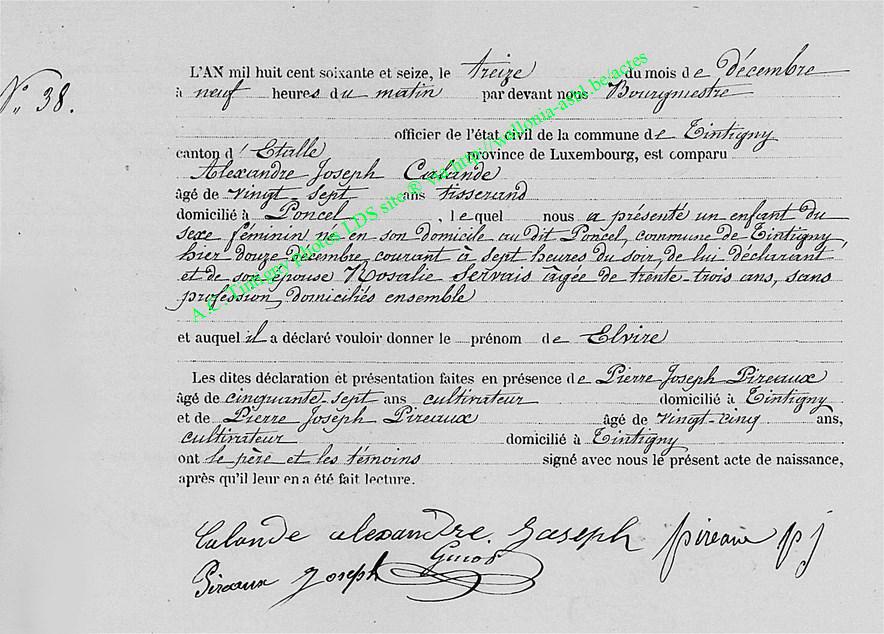 N° 38.
L'AN mil huit cent soixante et seize, le treize du mois de décembre
à neuf heures du matin par devant nous Bourgmestre
officier de l'état civil de la commune de Tintigny
canton d' Etalle province de Luxembourg, est comparu
Alexandre Joseph Calande
âgé de vingt sept ans tisserand
domicilié à Poncel, lequel nous a présenté un enfant du
sexe féminin né en son domicile au dit Poncel, commune de Tintigny,
hier douze décembre courant à sept heures du soir, de lui déclarant
et de son épouse Rosalie Servais âgée de trente trois ans, sans
profession, domiciliés ensemble
et auquel il a déclaré vouloir donner le prénom de Elvire
Les dites déclaration et présentation faites en présence de Pierre Joseph Pireaux
âgé de cinquante-sept ans cultivateur domicilié à Tintigny
et de Pierre Joseph Pireaux âgé de vingt-cinq ans,
cultivateur domicilié à Tintigny
ont le père et les témoins signé avec nous le présent acte de naissance,
après qu'il leur en a été fait lecture.
Calande alexandre Joseph pireaux pj
Pireaux Joseph
A.C. Tintigny photos LDS site ® via http://wallonia-asbl.be/actes